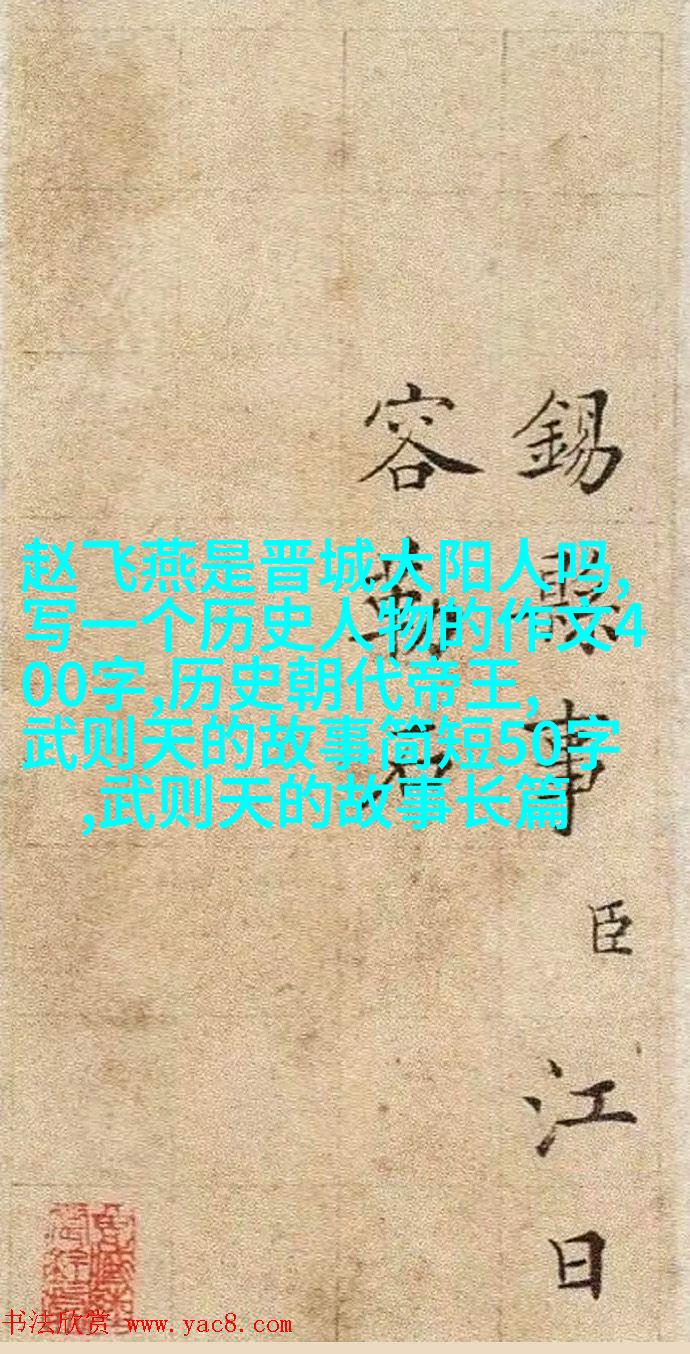 赵飞燕是晋城大阳人吗,
写一个历史人物的作文4
00字,历史朝代帝王,
武则天的故事简短50字
,武则天的故事长篇
錫
事
臣
江
日
容
书法欣赏 www.yac8.com